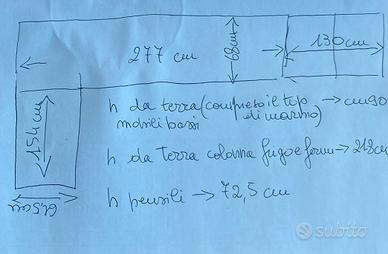 277 cm
68 cm
130 cm
154 cm
h da terra (compreso il top → cm 90
mobili bassi di marmo)
h da terra colonna frigo e forno → 218 cm
61,5 cm
h pensili → 72,5 cm
subito